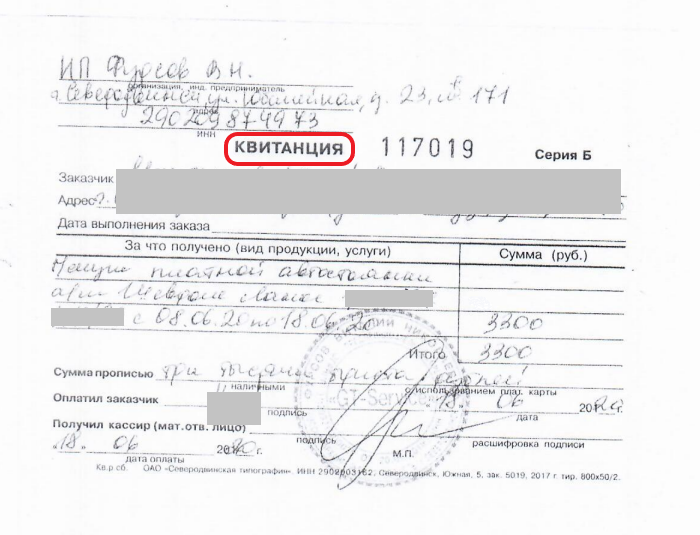 ИП Фурсов В.Н.
организация, инд. предприниматель
г. Северодвинск, ул. Юбилейная, д. 23, 171
адрес
290209874973
ИНН
КВИТАНЦИЯ 117019 Серия Б
Заказчик
Адрес г.
Дата выполнения заказа
За что получено (вид продукции, услуги) Сумма (руб.)
платной автостоянки
а/м Шевроле Ланос
с 08.06.20 по 18.06.20 3300
Итого 3300
Сумма прописью три тысячи триста рублей
наличными с использованием плат. карты
Оплатил заказчик 18. 06 2020г.
подпись дата
Получил кассир (мат.отв. лицо)
подпись расшифровка подписи
"18" 06 2020г. М.П.
дата оплаты
GT-Serv
Кв.р сб. ОАО «Северодвинская типография». ИНН 2902003162. Северодвинск, Южная, 5, зак. 5019, 2017 г. тир. 800х50/2.